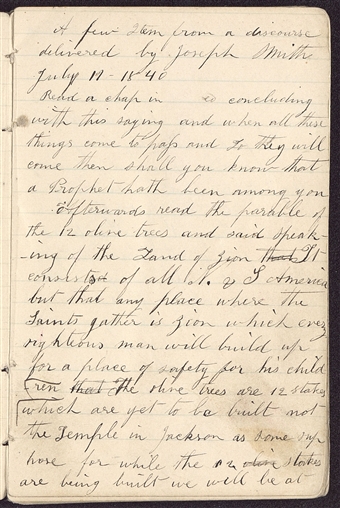 A few Item from a discourse
delivered by Joseph Smith
July 19 - 1840
Read a chap in to concluding
with this saying and when all these
things come to pass and lo they will
come then shall you know that
a Prophet hath been among you
Afterwards read the parable of
the 12 olive trees and said speak-
-ing of the Land of Zion that It
consists of all N. & S America
but that any place where the
Saints gather is Zion which every
righteous man will build up
for a place of safety for his child
ren that the olive trees are 12 stakes
which are yet to be built not
the Temple in Jackson as some sup
pose for while the 12 olive stakes
are being built we will be at